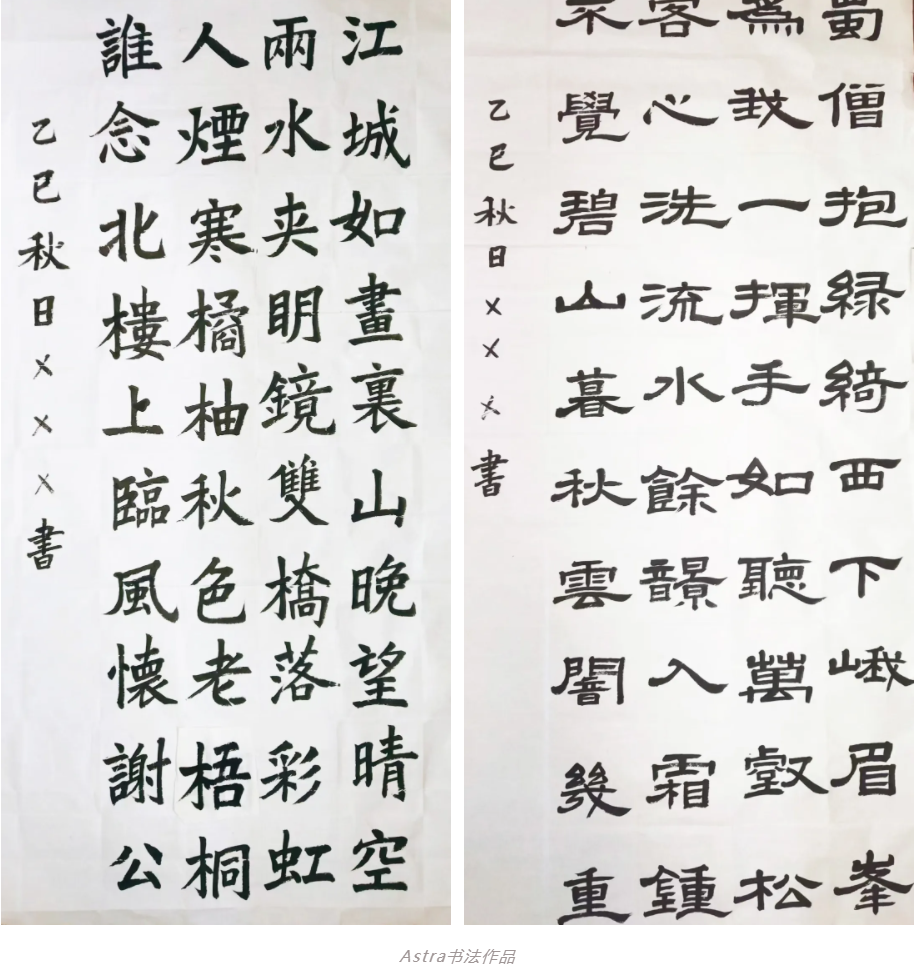 江城如畫裏山晚望晴空
兩水夹明鏡雙橋落彩虹
人煙寒橘柚秋色老梧桐
誰念北樓上臨風懷謝公
乙巳秋日×××書
蜀僧抱緑綺西下峨眉峯
爲我一揮手如聽萬壑松
客心洗流水餘響入霜鍾
不覺碧山暮秋雲闇幾重
乙巳秋日×××書
Astra书法作品